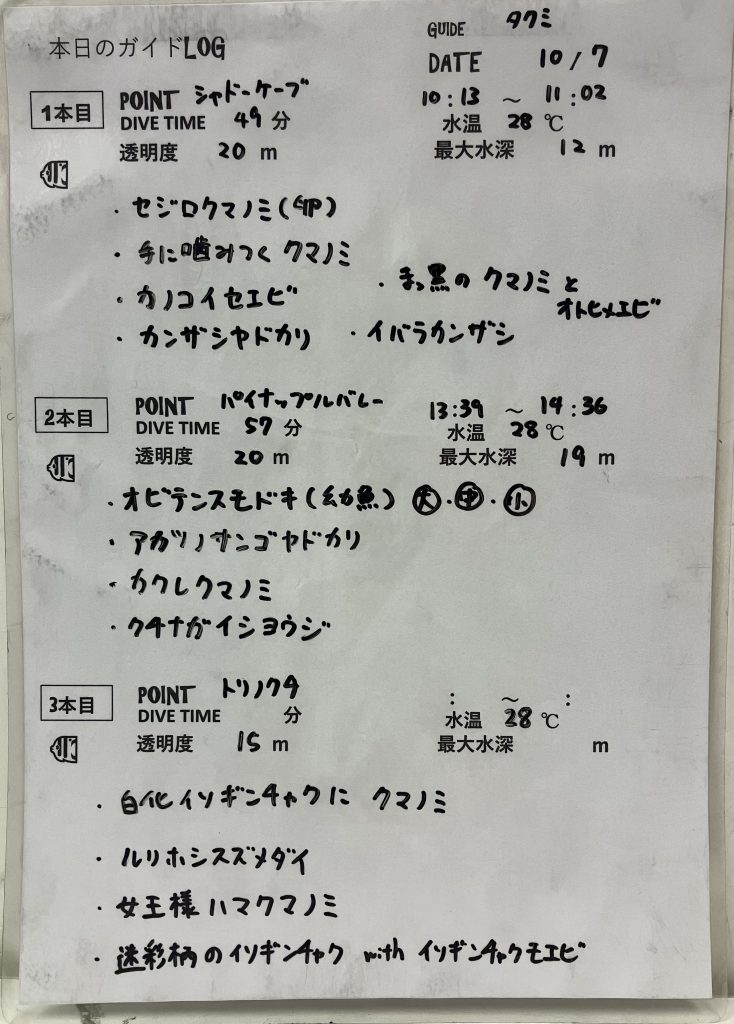 本日のガイドLOG
GUIDE タクミ
DATE 10/7
1本目 POINT シャドーケーブ 10:13 ～ 11:02
DIVE TIME 49 分 水温 28 ℃
透明度 20 m 最大水深 12 m
・セジロクマノミ(卵)
・手に噛みつく クマノミ
・カノコイセエビ ・まっ黒の クマノミ と
オトヒメエビ
・カンザシヤドカリ ・イバラカンザシ
2本目 POINT パイナップルバレー 13:39 ～ 14:36
DIVE TIME 57 分 水温 28 ℃
透明度 20 m 最大水深 19 m
・オビテンスモドキ(幼魚) 大・中・小
・アカツノサンゴヤドカリ
・カクレクマノミ
・クチナガイショウジ
3本目 POINT トリノクチ : ～ :
DIVE TIME 分 水温 28 ℃
透明度 15 m 最大水深 m
・白化イソギンチャクに クマノミ
・ルリホシスズメダイ
・女王様ハマクマノミ
・迷彩柄のイソギンチャク with イソギンチャクモエビ